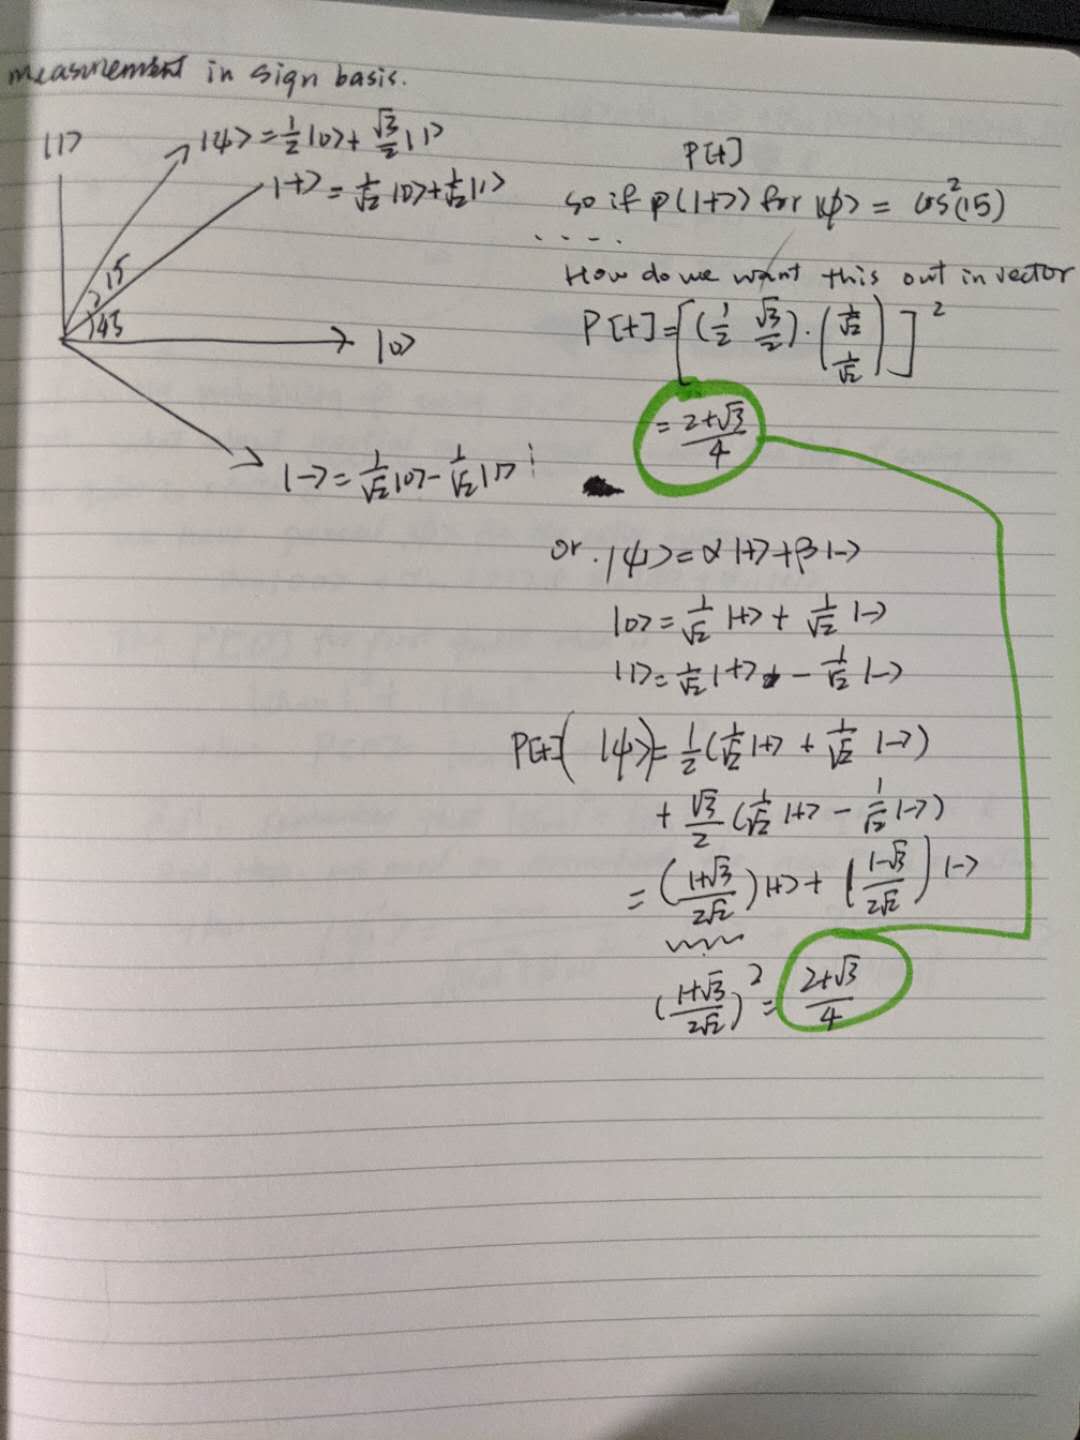 measurement in sign basis.
|1>
|ψ> = 1/2 |0> + √3/2 |1>
|+> = 1/√2 |0> + 1/√2 |1>
15
45
|0>
|-> = 1/√2 |0> - 1/√2 |1>
P[+]
so if P(|+>) for |ψ> = cos²(15)
.....
How do we want this out in vector
P[+] = [(1/2 √3/2) · (1/√2 1/√2)]²
= 2+√3/4
or. |ψ> = α|+> + β|->
|0> = 1/√2 |+> + 1/√2 |->
|1> = 1/√2 |+> - 1/√2 |->
P[+](|ψ>) = 1/2 (1/√2 |+> + 1/√2 |->)
+ √3/2 (1/√2 |+> - 1/√2 |->)
= (1+√3/2√2)|+> + (1-√3/2√2)|->
(1+√3/2√2)² = 2+√3/4